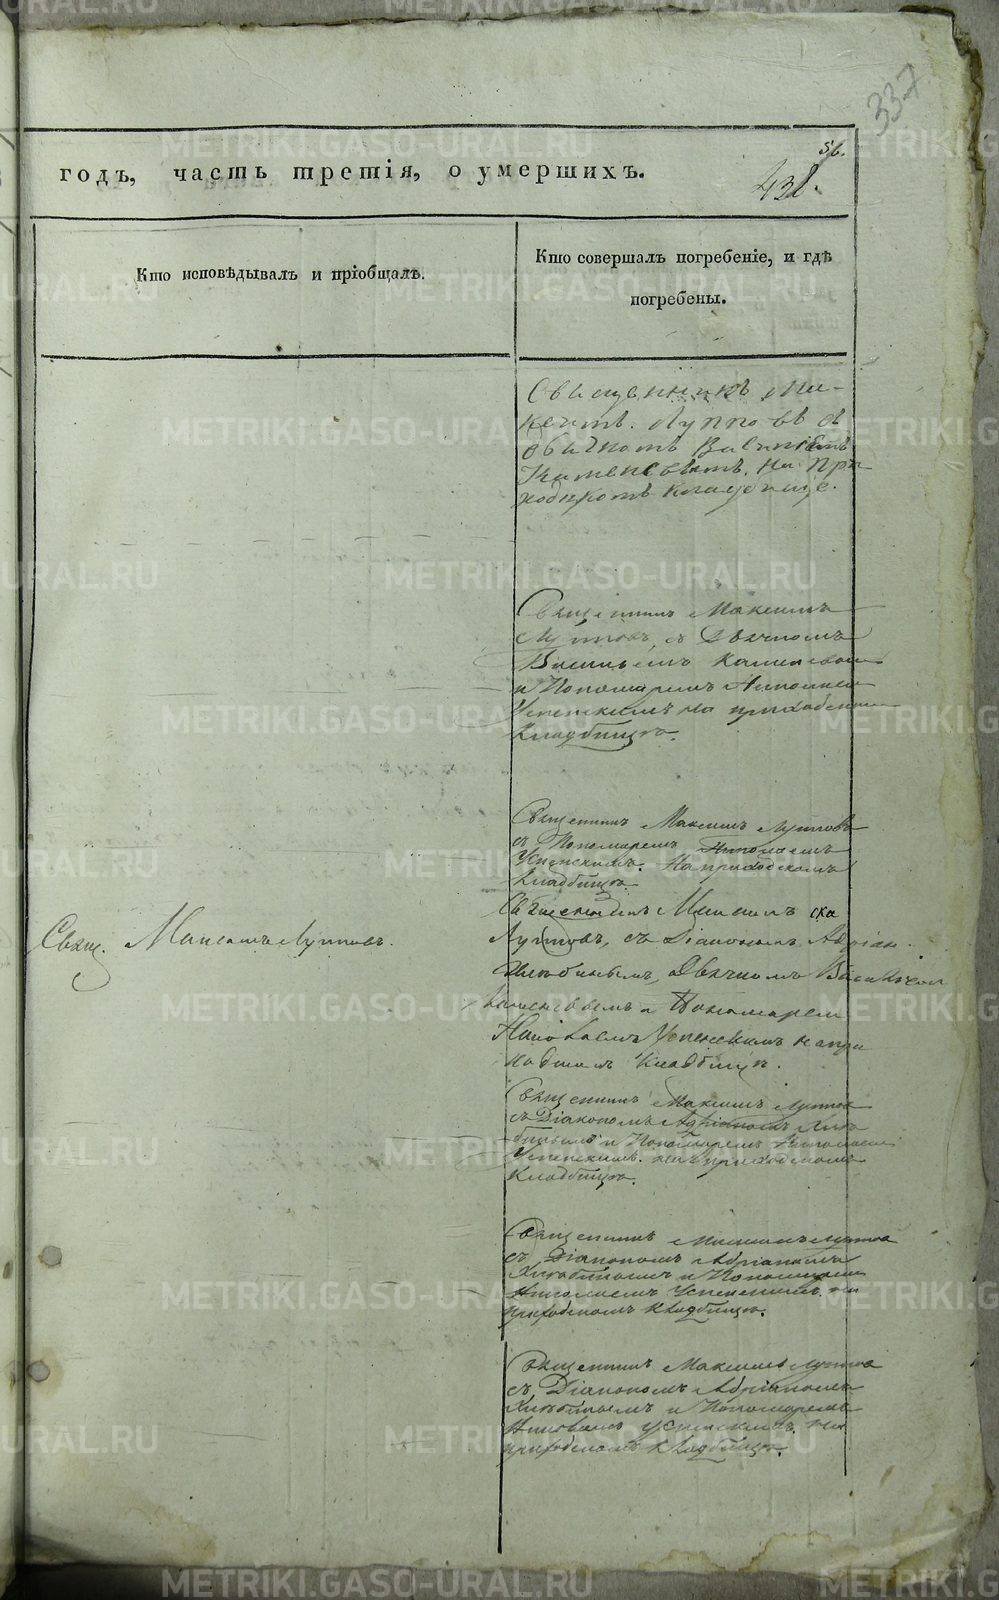 337
56.
438.
годъ, часть третія, о умершихъ.
Кто исповѣдывалъ и пріобщалъ.
Кто совершалъ погребеніе, и гдѣ
погребены.
Священникъ Ма-
Лупповъ съ
на При
ходскомъ кладбище.
Священникъ Максимъ
Лупповъ, съ Дьячкомъ
Васильемъ Каменевым
и Пономаремъ Николаем
Успенскимъ на приходском
Кладбищѣ.
Священникъ Максимъ Лупповъ
съ Пономаремъ Николаемъ
Успенскимъ. На приходскомъ
Кладбищѣ
Свящ. Максимъ Лупповъ.
Священникъ Максимъ
Лупповъ, съ Діакономъ Адріан
Хлѣбинымъ, Дьячкомъ Васильем
Каменевымъ и Пономарем
Николаемъ Успенскимъ на при
ходском Кладбищѣ.
Священникъ Максимъ Луппов
съ Діакономъ Адріаномъ Хлѣ
бинымъ и Пономаремъ Николаем
Успенскимъ. на приходскомъ
Кладбищѣ.
Священникъ Максимъ Луппов
съ Діакономъ Адріаномъ
Хлѣбинымъ и Пономарем
Николаемъ Успенскимъ, на
приходскомъ Кладбищѣ.
Священникъ Максимъ Луппов
съ Діакономъ Адріаномъ
Хлѣбинымъ и Пономаремъ
Николаемъ Успенскимъ. на
приходскомъ Кладбищѣ.
METRIKI.GASO-URAL.RU